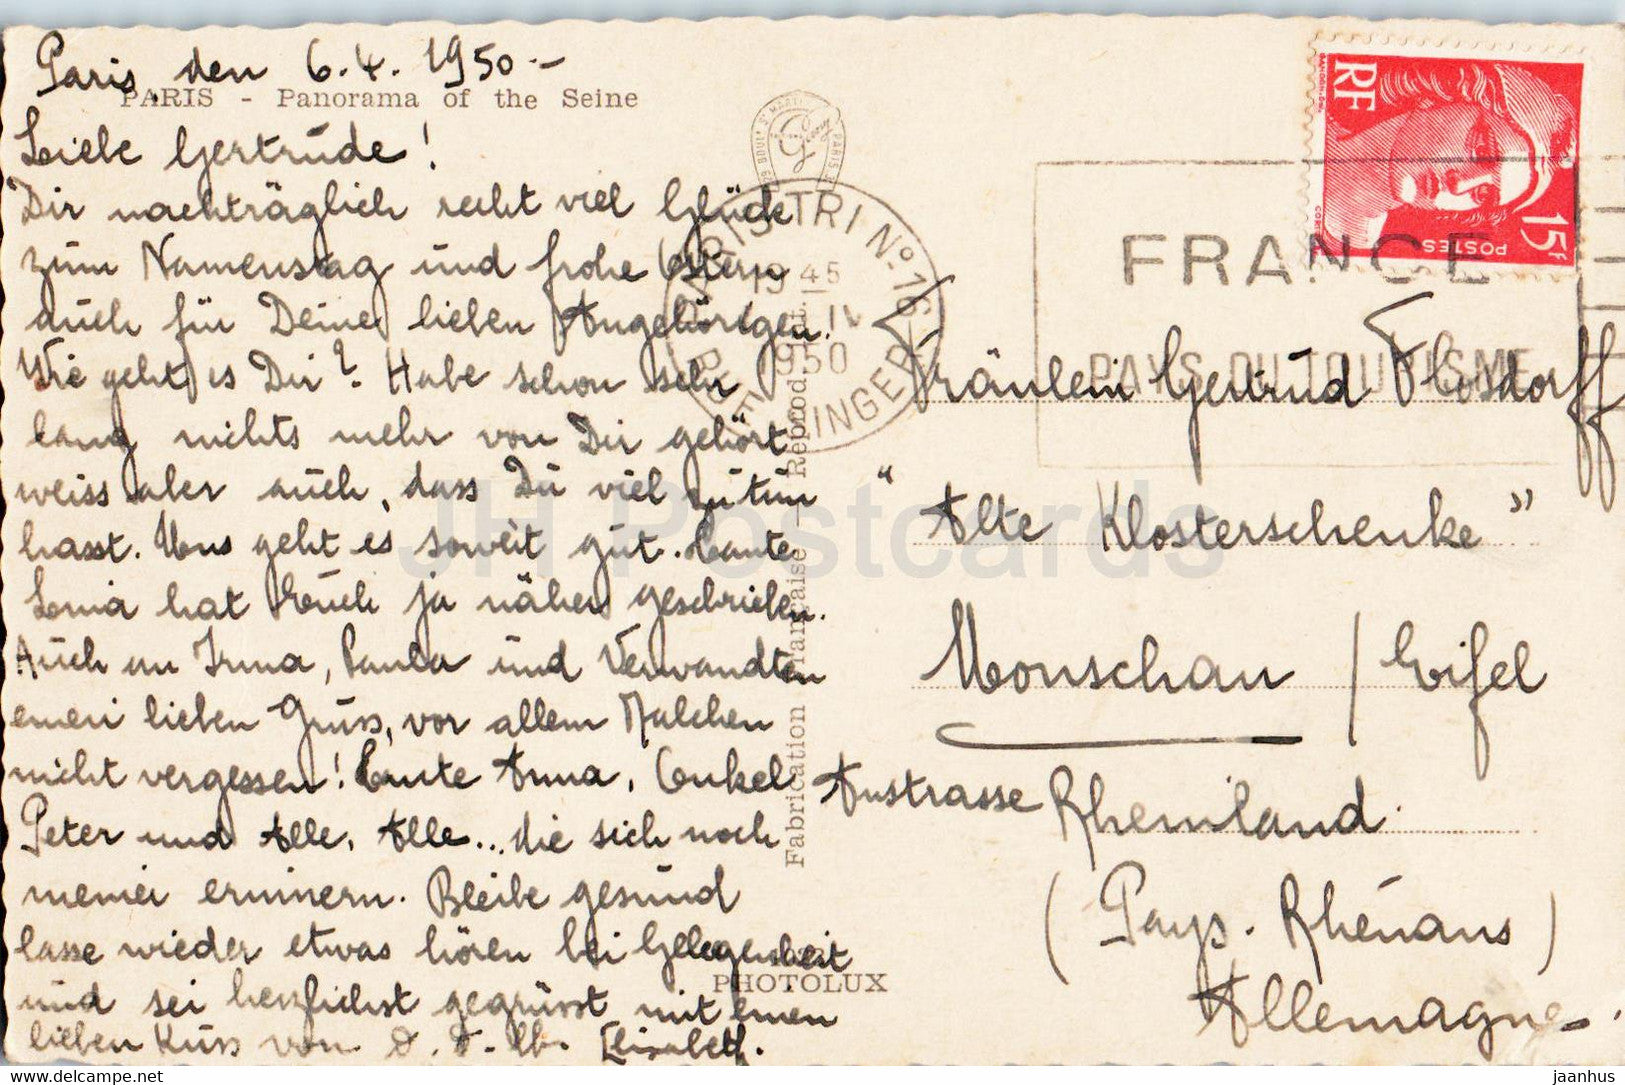 Paris, den 6.4.1950.-
PARIS - Panorama of the Seine
Liebe Gertrude!
Dir nachträglich recht viel Glück
zum Namenstag und frohe Ostern
auch für Deine lieben Angehörigen!
Wie geht es Dir? Habe schon sehr
lang nichts mehr von Dir gehört
weiss aber auch, dass Du viel zu tun
hast. Uns geht es soweit gut. Tante
hat Euch ja näher geschrieben.
Auch an Irma, Paula und Verwandten
einen lieben Gruss, vor allem Malchen
nicht vergessen! Tante Anna, Onkel
Peter und Alle, Alle... die sich noch
meiner erinnern. Bleibe gesund
lasse wieder etwas hören bei Gelegenheit
und sei herzlichst gegrüsst mit einen
lieben Kuss von d. d. lb. Elisabeth.
Fabrication Française - Reprod. Int.
PHOTOLUX
PARIS TRI No 16
19 45
IV
1950
FRANCE
PAYS DU TOURISME
RF
POSTES
15F
Fräulein Gertrud Flosdorff
"Alte Klosterschenke"
Monschau / Eifel
Austrasse Rheinland.
(Pays. Rhénans)
Allemagne.
JH Postcards
© delcampe.net
jaanhus